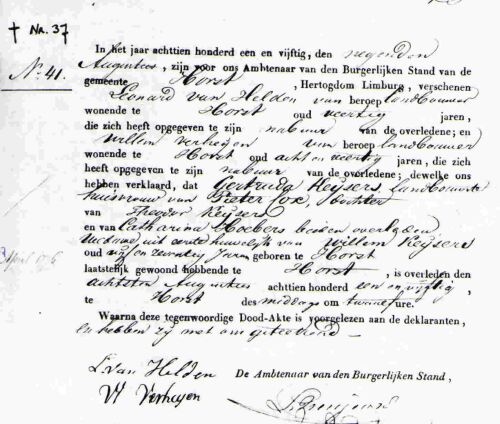 † Na. 37
No. 41.
In het jaar achttien honderd een en vijftig, den negenden
Augustus, zijn voor ons Ambtenaar van den Burgerlijken Stand van de
gemeente Horst, Hertogdom Limburg, verschenen
Leonard van Helden van beroep landbouwer
wonende te Horst oud veertig jaren,
die zich heeft opgegeven te zijn nabuur van de overledene; en
Willem Verheijen van beroep landbouwer
wonende te Horst oud acht en veertig jaren, die zich
heeft opgegeven te zijn nabuur van de overledene; dewelke ons
hebben verklaard, dat Gertruda Keysers landbouwster
huisvrouw van Pieter Cox, dochter
van Theodor Keysers
en van Catharina Hoebers beiden overleden
weduwe uit eerste huwelijk van Willem Keysers
oud vijf en zeventig Jaren geboren te Horst
laatstelijk gewoond hebbende te Horst, is overleden den
achtsten Augustus achttien honderd een en vijftig,
te Horst des middags om twaalf ure.
Waarna deze tegenwoordige Dood-Akte is voorgelezen aan de deklaranten,
en hebben zij met ons geteekend
L. van Helden
De Ambtenaar van den Burgerlijken Stand,
W Verheyen